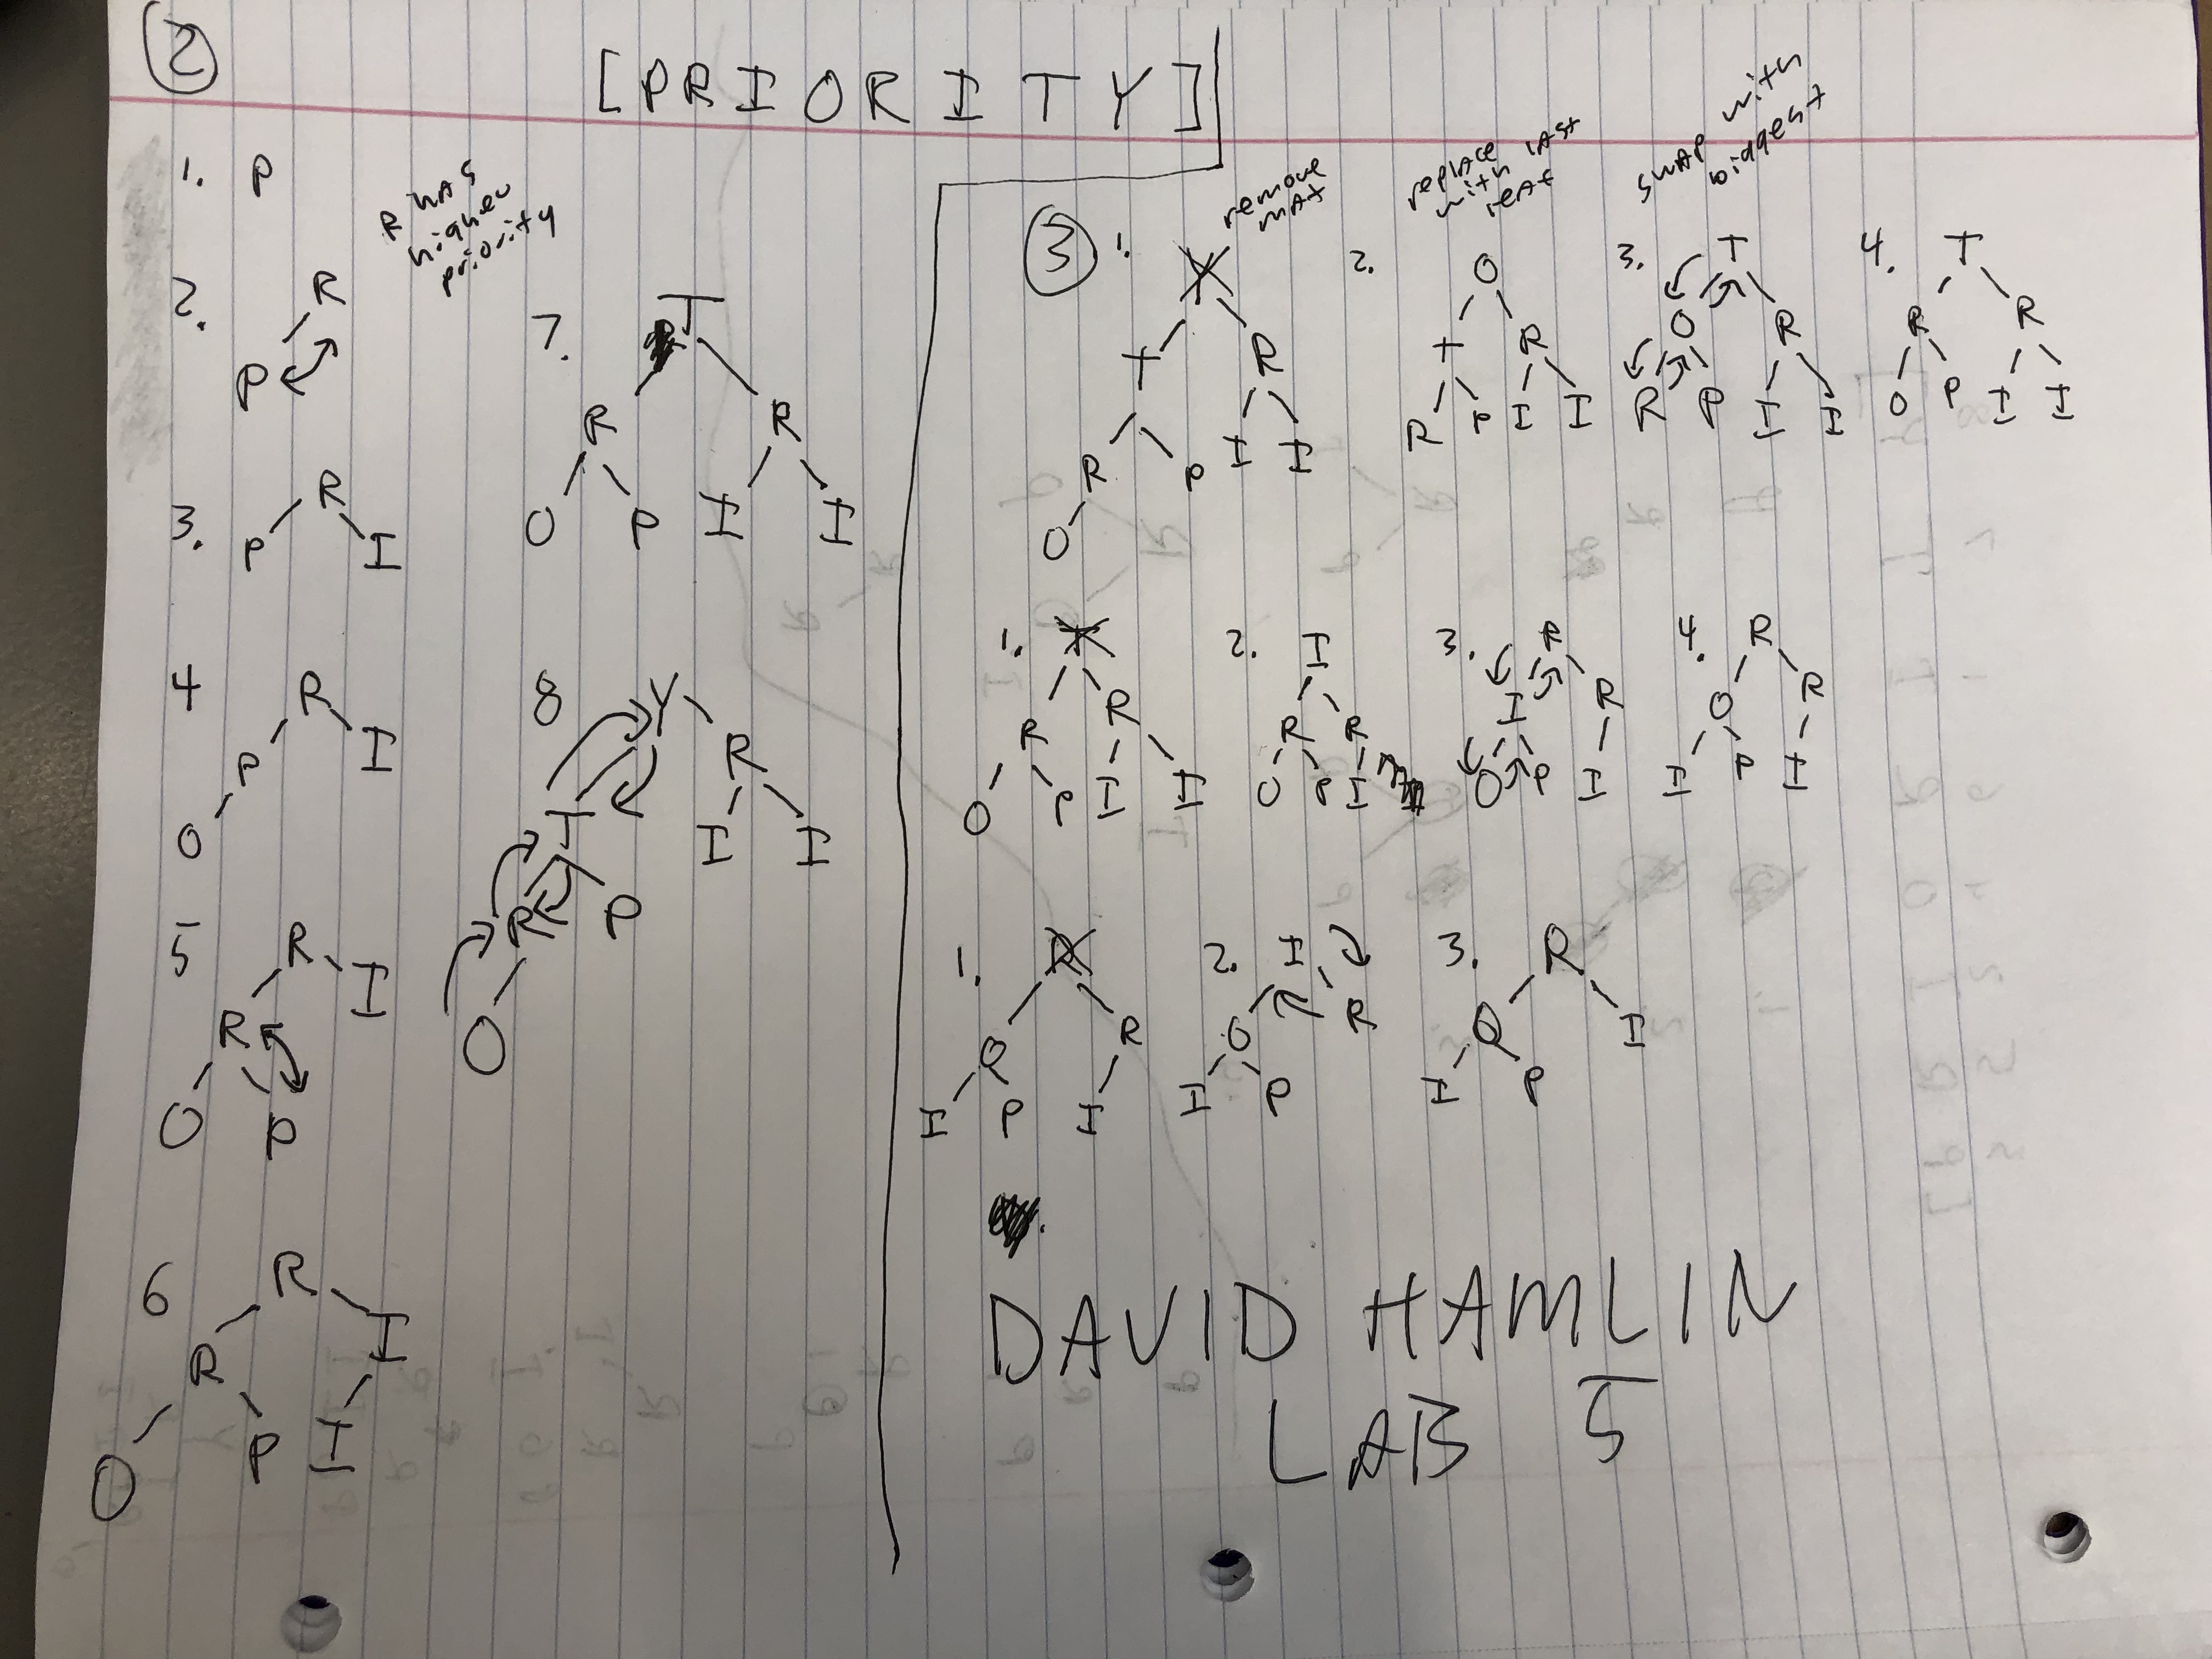 2
[ P R I O R I T Y ]
1. P
R has
higher
priority
2.
R
P
3.
R
P I
4
R
P I
O
5
R
R I
O P
6
R
R I
O P I
7.
T
R R
O P I I
8
Y
T R
R P I I
O
3
remove
max
replace
with last
leaf
swap with
biggest
1.
T R
R P I I
O
2.
O
T R
R P I I
3.
T
O R
R P I I
4.
T
R R
O P I I
1.
R R
O P I I
2.
I
R R
O P I
3.
R
I R
O P I
4.
R
O R
I P I
1.
R
O R
I P I
2.
I
O R
I P
3.
R
O I
I P
DAVID HAMLIN
LAB 5